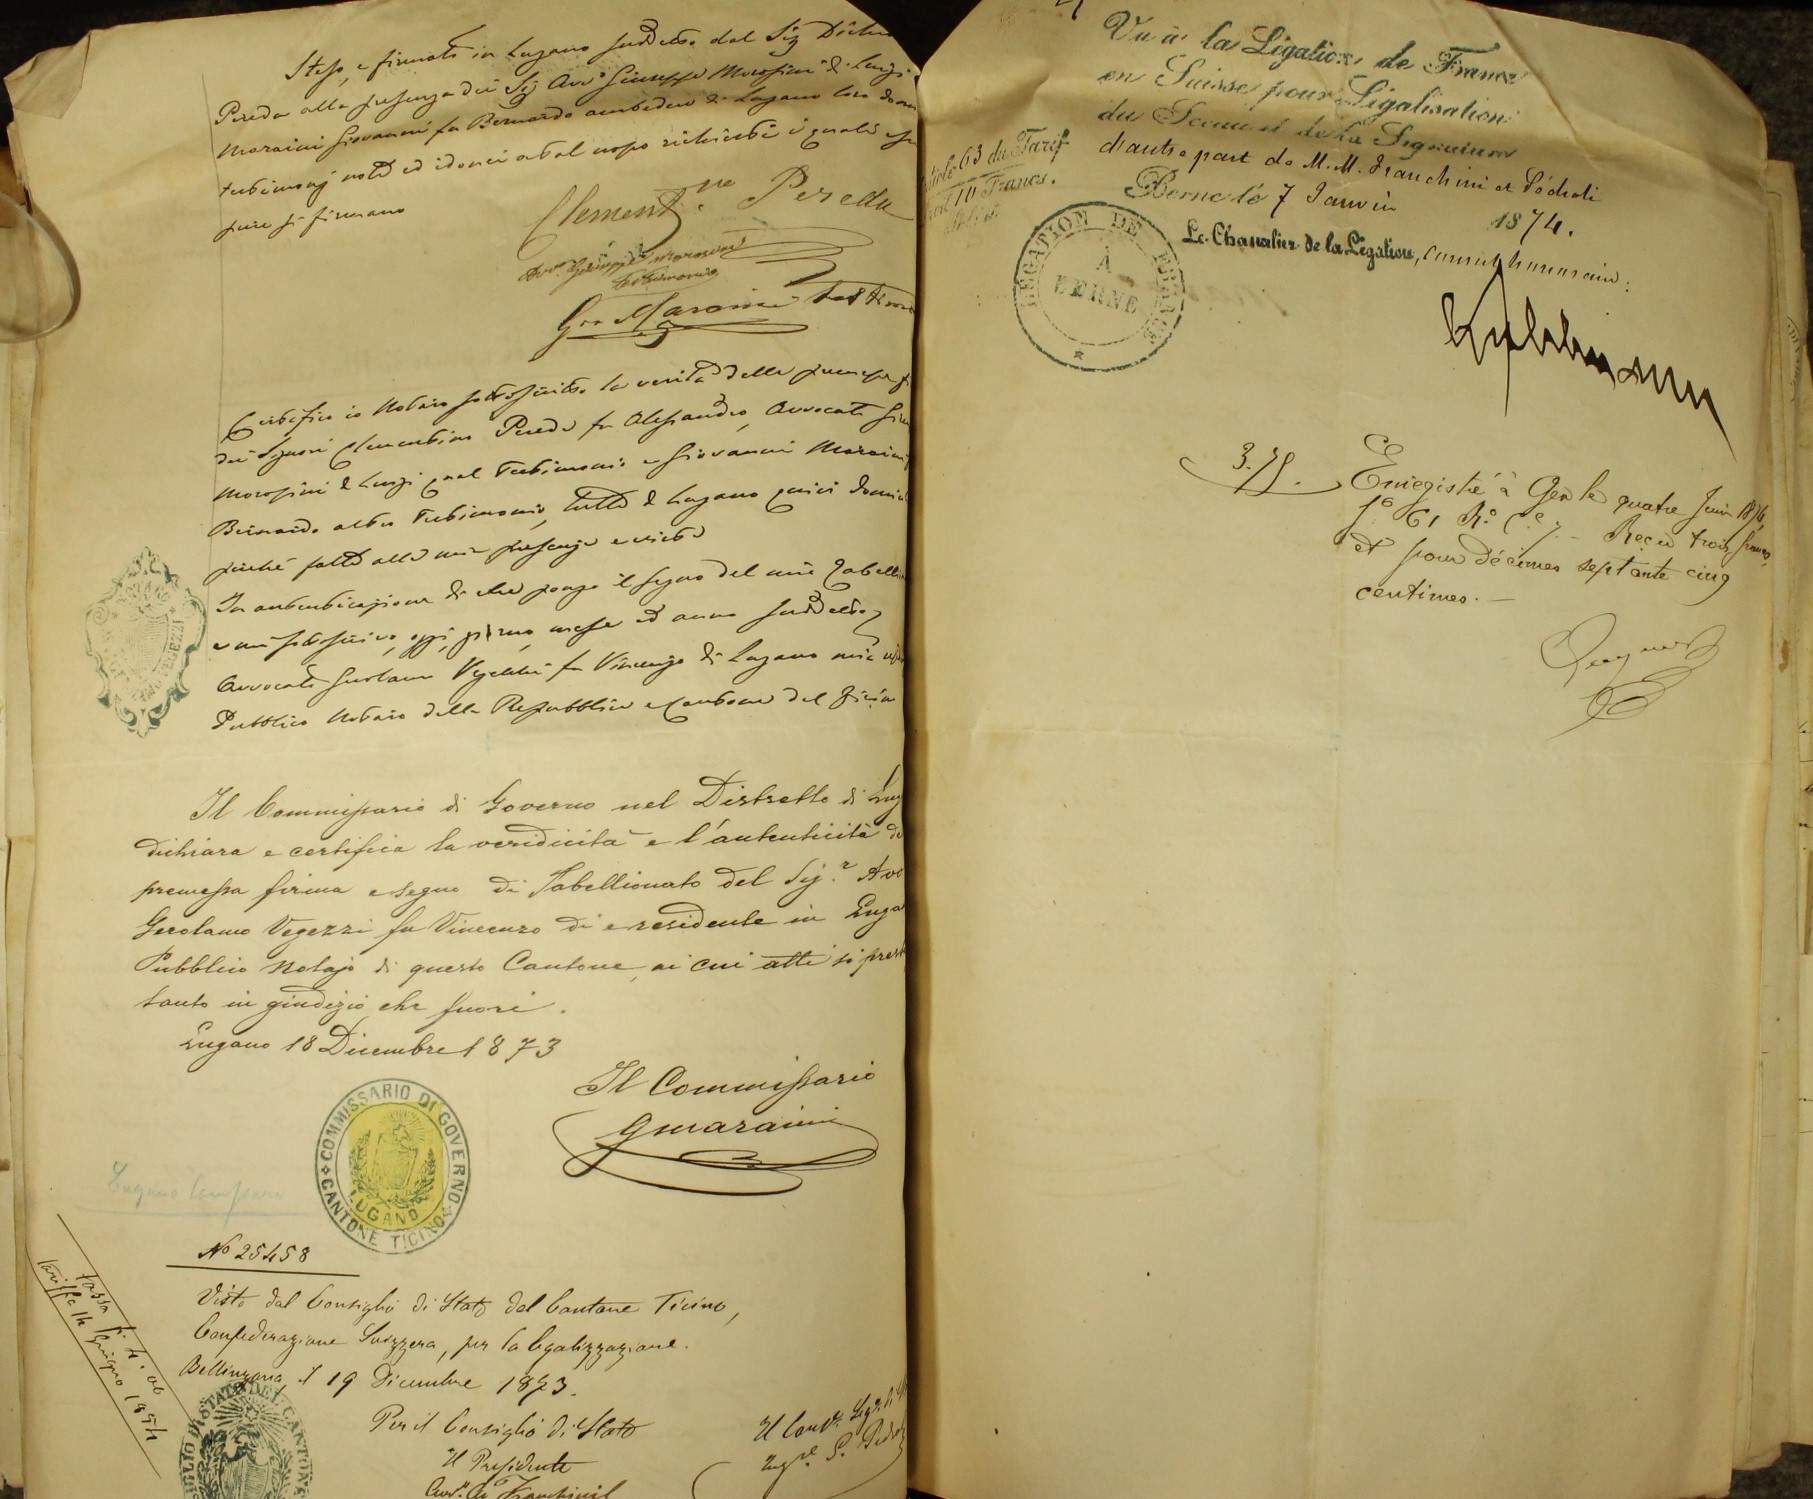 Stesso, e firmato in Lugano suddetto dal Sig
Pereda alla presenza dei Sig Avv.o Giuseppe Morosini di Luigi
Maraini Giovanni fu Bernardo ambedue di Lugano loro
testimonj noti ed idonei ed al uopo richiesti i quali
pure si firmano
Clement.ne Pereda
Avv.o Giuseppe Morosini
testimonio
Gni Maraini testimo
Certifico io Notaro sottoscritto la verità delle premesse
dei Signori Clementino Pereda fu Alessandro, Avvocato
Morosini di Luigi qual testimonio e Giovanni Maraini
Bernardo altro testimonio, tutti di Lugano quivi
perchè fatte alla mia presenza e vista
In autenticazione di che pongo il segno del mio Tabell
e mi sottoscrivo, oggi, giorno, mese ed anno suddetto
Avvocato Gerolamo Vegezzi fu Vincenzo di Lugano
Pubblico Notaro della Repubblica e Cantone del Ticino
VEGEZZI
Il Commissario di Governo nel Distretto di Lug
dichiara e certifica la veridicità e l'autenticità
premessa firma e segno di Tabellionato del Sig.r Avv
Gerolamo Vegezzi fu Vincenzo di e residente in Luga
Pubblico Notajo di questo Cantone, ai cui atti si prest
tanto in giudizio che fuori.
Lugano 18 Dicembre 1873
Il Commissario
Gmaraini
COMMISSARIO DI GOVERNO
CANTONE TICINO
LUGANO
No 25458
Tassa f. 4. 00
tariffa 14 Giugno 1854
Visto dal Consiglio di Stato del Cantone Ticino,
Confederazione Svizzera, per la legalizzazione.
Bellinzona, il 19 Dicembre 1873.
Per il Consiglio di Stato
Il Presidente
Franchini
Il Cons.re Seg.rio
CONSIGLIO DI STATO DEL CANTONE
Vu à la Légation de France
en Suisse pour Légalisation
du Sceau et de la Signature
d'autre part de M.M. Franchini et Pédroli
Berne le 7 Janvier 1874.
Le Chancelier de la Légation, Consul honoraire:
Article 63 du Tarif
10 Francs.
LEGATION DE FRANCE
A
BERNE
3.75. Enregistré à Gex le quatre Juin 1874,
fo 61 Ro Ce 7 - Reçu trois francs
et pour décimes septante cinq
centimes. -